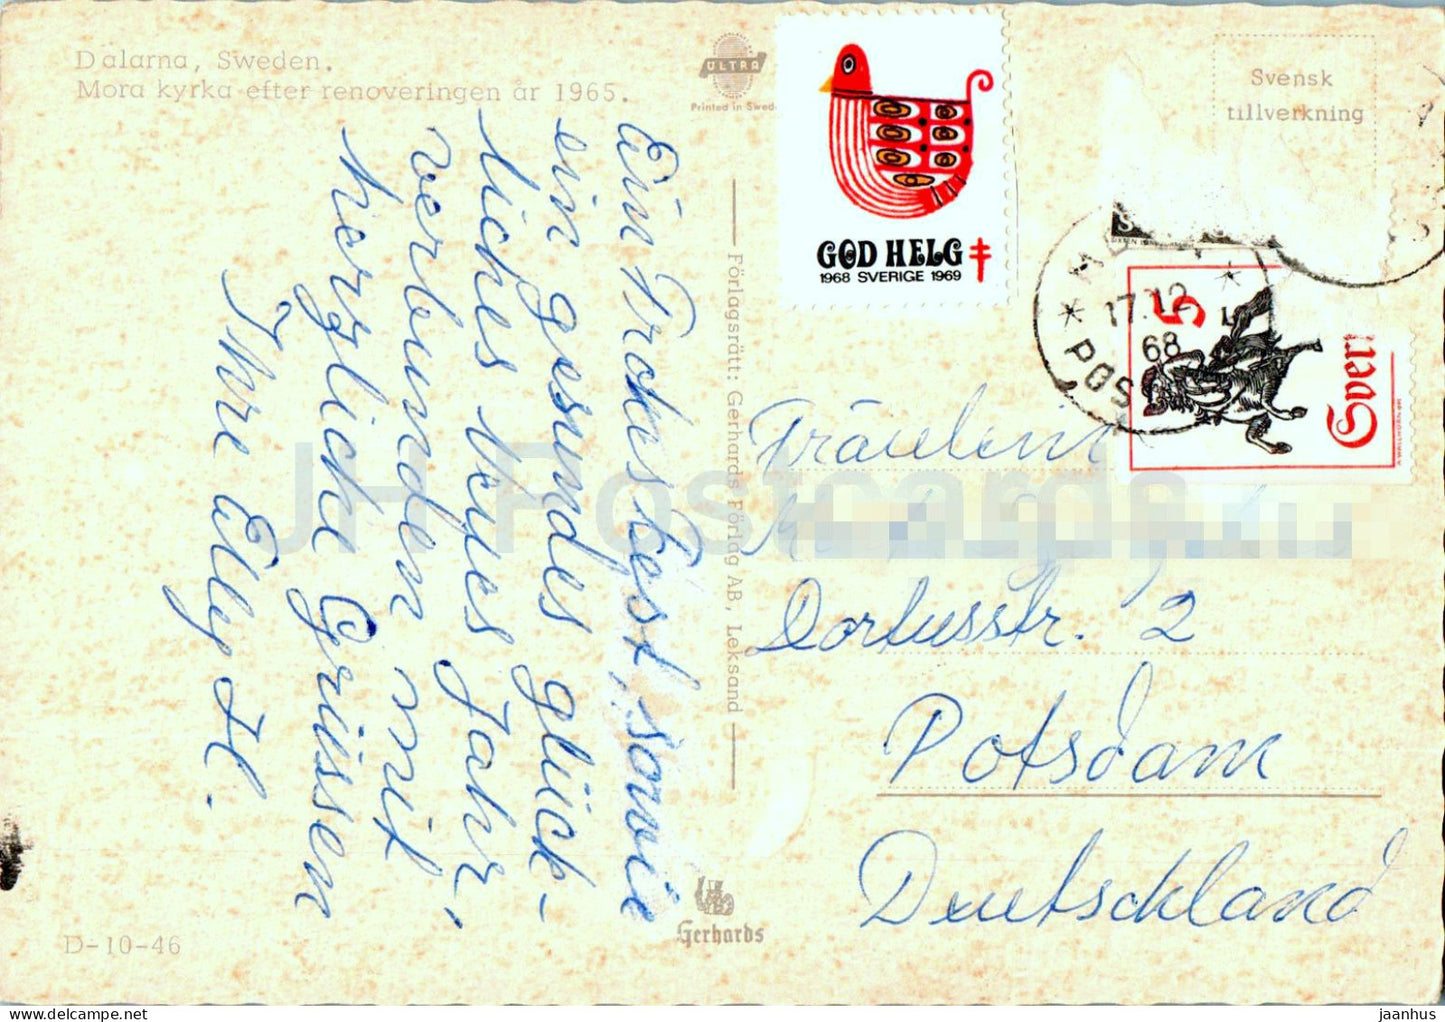 Dalarna, Sweden.
Mora kyrka efter renoveringen år 1965.
ULTRA
Printed in Swed
GOD HELG
1968 SVERIGE 1969
Svensk
tillverkning
17.12
68
POS
5
Sver
Ein Frohes Fest, sowie
ein gesundes glück-
liches Neues Jahr,
verbunden mit
herzliche Grüssen
Ihre Elly H.
Förlagsrätt: Gerhards Förlag AB, Leksand
Fräulein
Dortusstr. 2
Potsdam
Deutschland
Gerhards
D-10-46
JH Postcards
jaanhu.com